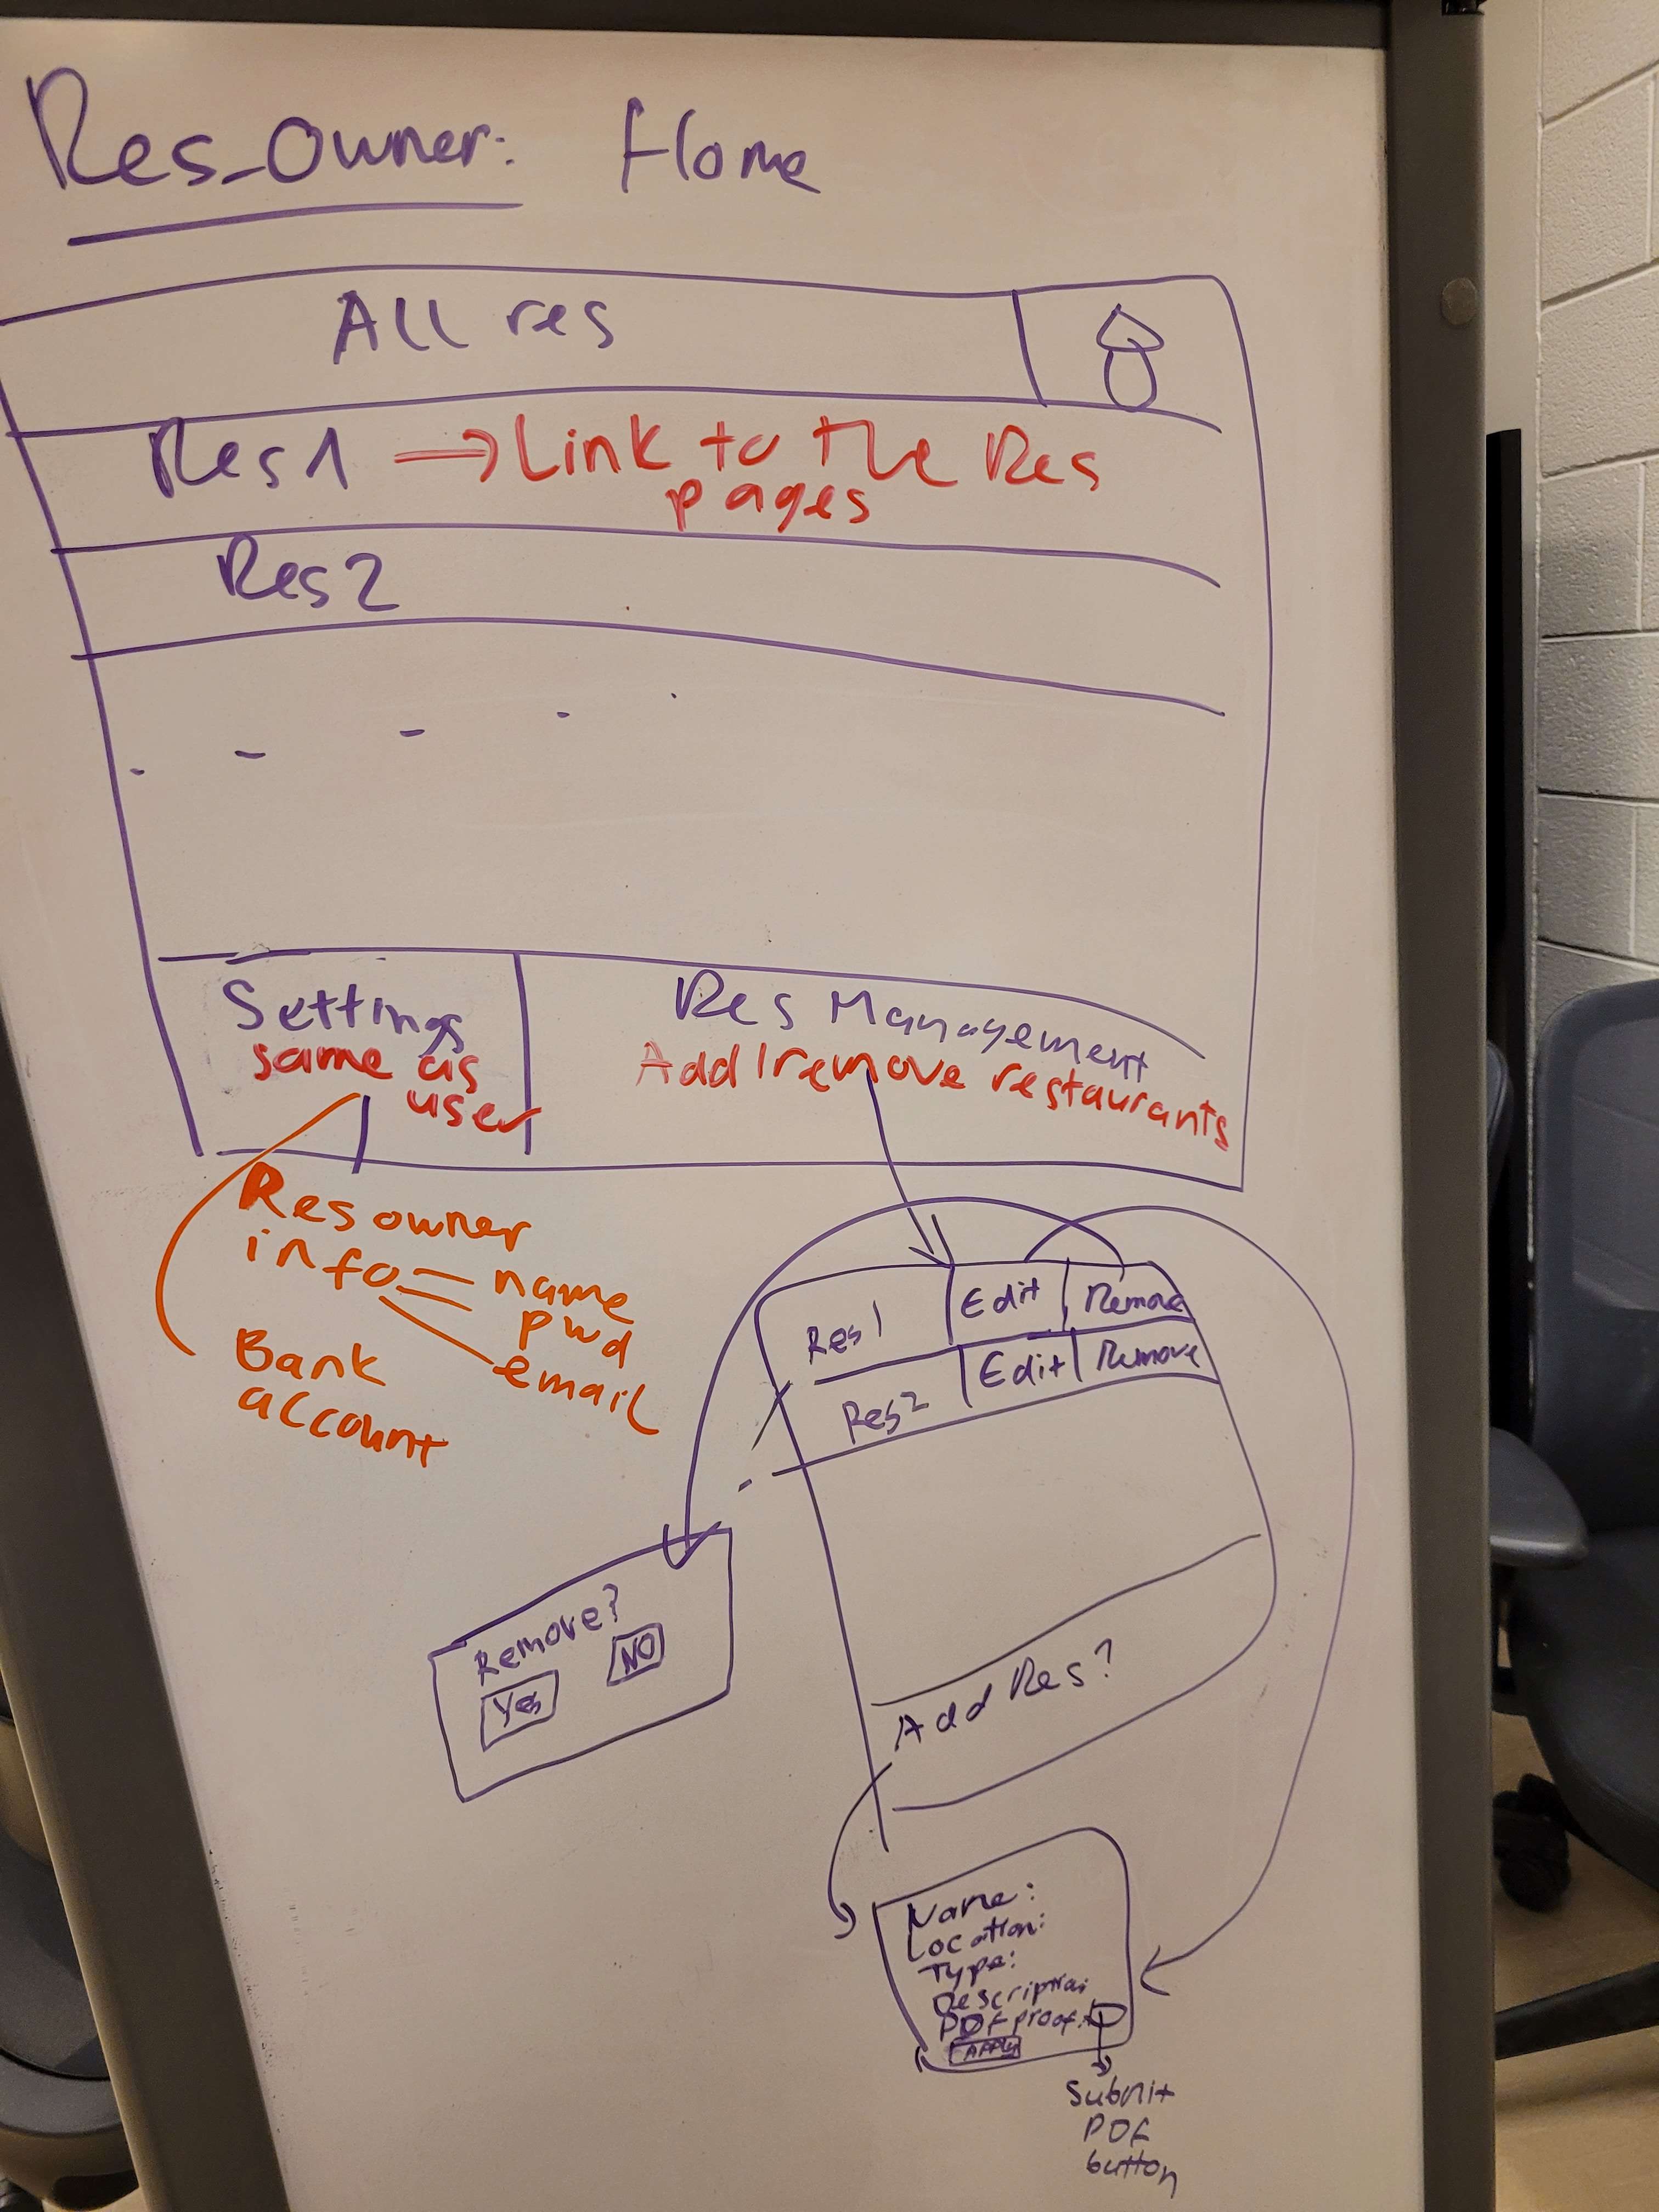 Res_Owner: Home
All res
Res1 → Link to the Res
pages
Res2
Settings
same as
user
Res Management
Add/remove restaurants
Res owner
info
name
pwd
email
Bank
account
Res1 Edit Remove
Res2 Edit Remove
Remove?
Yes NO
Add Res?
Name:
Location:
Type:
Description:
PDF proof:
APPLY
Submit
PDF
button